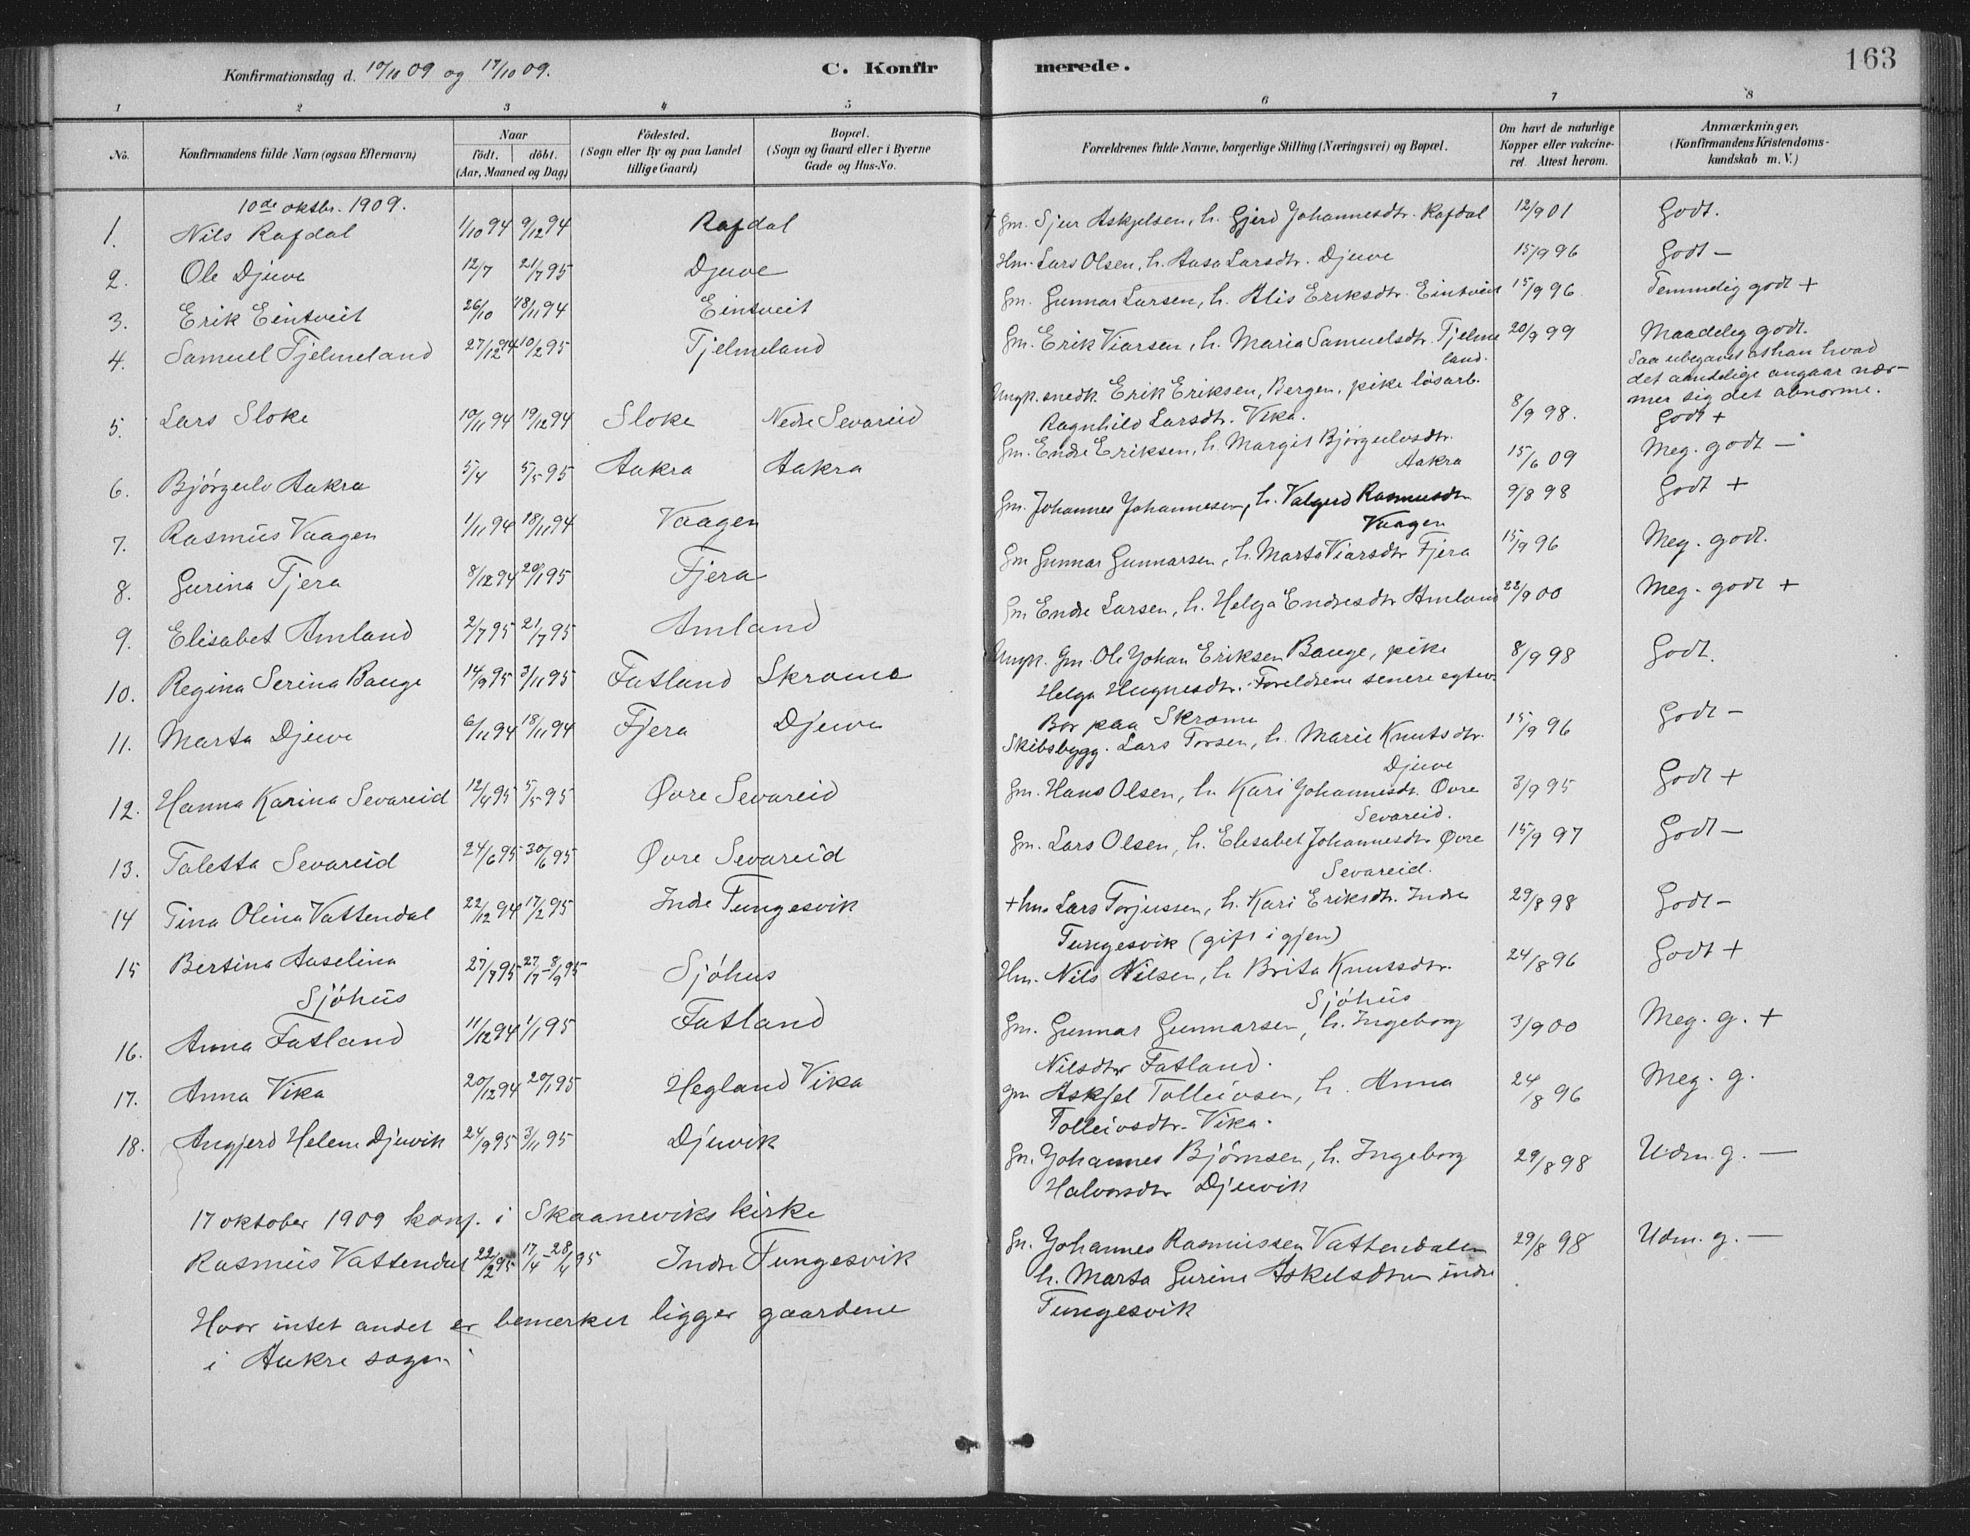 Konfirmationsdag d. 10/10 09 og 17/10 09.
C. Konfirmerede.
163
1 2 3 4 5 6 7 8
No.
Konfirmandens fulde Navn (ogsaa Efternavn)
Naar
født. | döbt.
(Aar, Maaned og Dag)
Födested.
(Sogn eller By og paa Landet
tillige Gaard)
Bopæl.
(Sogn og Gaard eller i Byerne
Gade og Hus-No.
Forældrenes fulde Navne, borgerlige Stilling (Næringsvei) og Bopæl.
Om havt de naturlige
Kopper eller vakcine-
ret Attest herom.
Anmærkninger.
(Konfirmandens Kristendoms-
kundskab m. V.)
10de oktbr. 1909.
1. Nils Rafdal 1/10 94 9/12 94 Rafdal † Gm. Sjur Askjelsen, h. Gjerd Johannesdtr. Rafdal 12/9 01 Godt.
2. Ole Djuve 12/7 21/7 95 Djuve Hm. Lars Olsen, h. Aasa Larsdtr. Djuve 15/9 96 Godt –
3. Erik Eintveit 26/10 18/11 94 Eintveit Gm. Gunnar Larsen, h. Alis Eriksdtr. Eintveit 15/9 96 Temmelig godt +
4. Samuel Tjelmeland 27/12 94 10/2 95 Tjelmeland Gm. Erik Viarsen, h. Maria Samuelsdtr. Tjelme
land. 20/9 99 Maadelig godt.
Saa ubegavet at han hvad
det aandelige angaar nær-
mer sig det abnorme.
5. Lars Sloke 10/11 94 19/12 94 Sloke Nedre Sevareid Ungk. snedk. Erik Eriksen, Bergen, pike løsarb.
Ragnhild Larsdtr. Vika. 8/9 98. Godt +
6. Bjørgulv Aakra 5/4 5/5 95 Aakra Aakra Gm. Endre Eriksen, h. Margit Bjørgulvsdtr.
Aakra 15/6 09 Meg. godt –
7. Rasmus Vaagen 1/11 94 18/11 94 Vaagen Gm. Johannes Johannesen, h. Valgerd Rasmusdtr
Vaagen 9/8 98 Godt +
8. Gurina Fjera 8/12 94 20/1 95 Fjera Gm Gunnar Gunnarsen, h. Marta Viarsdtr Fjera 15/9 96 Meg. godt.
9. Elisabet Amland 2/7 95 21/7 95 Amland Gm Endre Larsen, h. Helga Endresdtr Amland 22/9 00 Meg. godt +
10. Regina Serina Bauge 14/9 95 3/11 95 Fatland Skromo Ungk. Gm. Ole Johan Eriksen Bauge, pike
Helga Hugnesdtr. Foreldrene senere egtev.
Bor paa Skromo 8/9 98 Godt.
11. Marta Djuve 6/11 94 18/11 94 Fjera Djuve Skibsbygg. Lars Torsen, h. Marie Knutsdtr.
Djuve 15/9 96 Godt –
12. Hanna Karina Sevareid 12/4 95 5/5 95 Øvre Sevareid Gm. Hans Olsen, h. Kari Johannesdtr. Øvre
Sevareid. 3/9 95 Godt +
13. Taletta Sevareid 24/6 95 30/6 95 Øvre Sevareid Gm. Lars Olsen, h. Elisabet Johannesdtr Øvre
Sevareid. 15/9 97 Godt –
14 Tina Olina Vattendal 22/12 94 17/2 95 Indre Tungesvik + hm. Lars Torjussen, h. Kari Eriksdtr. Indre
Tungesvik (gift igjen) 29/8 98 Godt –
15 Bertina Aaselina
Sjöhus 27/7 95 27/7 – 8/9 95 Sjöhus Hm. Nils Nilsen, h Brita Knutsdtr.
Sjöhus 24/8 96 Godt +
16. Anna Fatland 11/12 94 1/1 95 Fatland Gm. Gunnar Gunnarsen, h. Ingeborg
Nilsdtr Fatland. 3/9 00 Meg. g. +
17. Anna Vika 20/12 94 20/1 95 Hegland Vika gm Askjel Tolleivsen, h. Anna
Tolleivsdtr. Vika. 24/8 96 Meg. g.
18. Angjerd Helene Djuvik 24/9 95 3/11 95 Djuvik Gm. Johannes Bjørnsen, h. Ingeborg
Halvorsdtr Djuvik 29/8 98 Udm. g. –
17 oktober 1909 konf. i Skaaneviks kirke
Rasmus Vattendal 22/2 95 17/4 – 28/4 95 Indre Tungesvik Gm. Johannes Rasmussen Vattendalen
h. Marta Gurine Askelsdtr indre
Tungesvik 29/8 98 Udm. g. –
Hvor intet andet er bemerket ligger gaardene
i Aakre sogn.